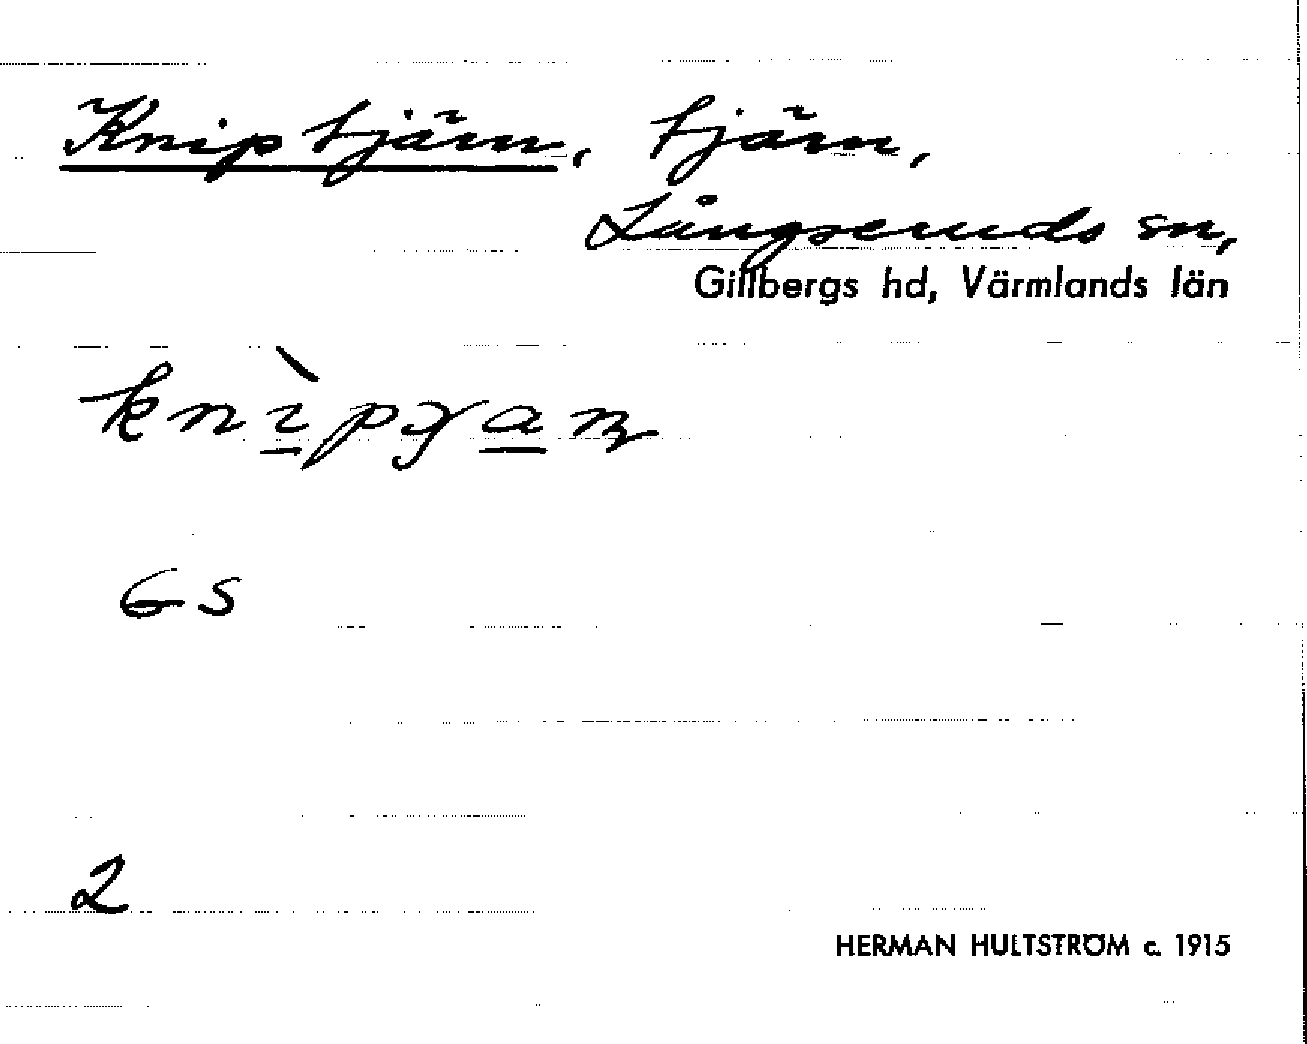 Kniptjärn, tjärn,
Långseruds sn,
Gillbergs hd, Värmlands län
GS
2
HERMAN HULTSTRÖM c. 1915